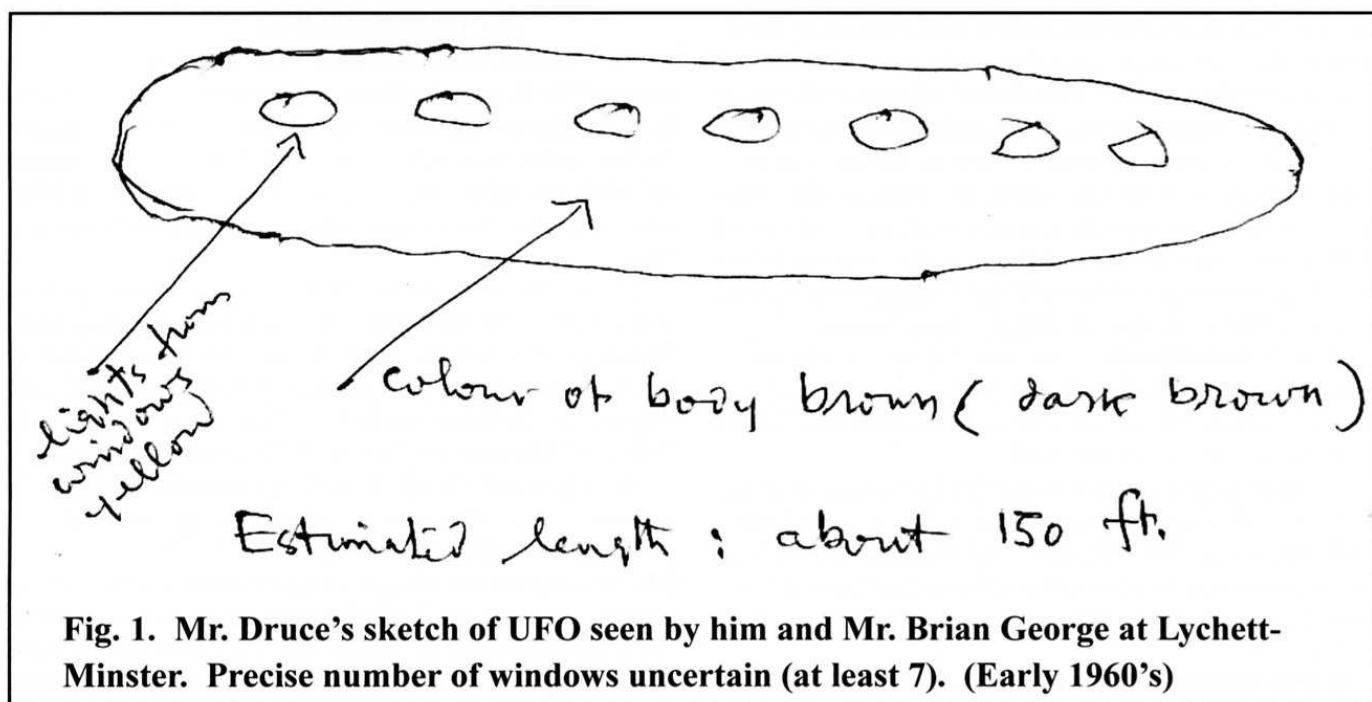 lights from
windows
yellow
colour of body brown ( dark brown )
Estimated length : about 150 ft.
Fig. 1. Mr. Druce’s sketch of UFO seen by him and Mr. Brian George at Lychett-
Minster. Precise number of windows uncertain (at least 7). (Early 1960’s)